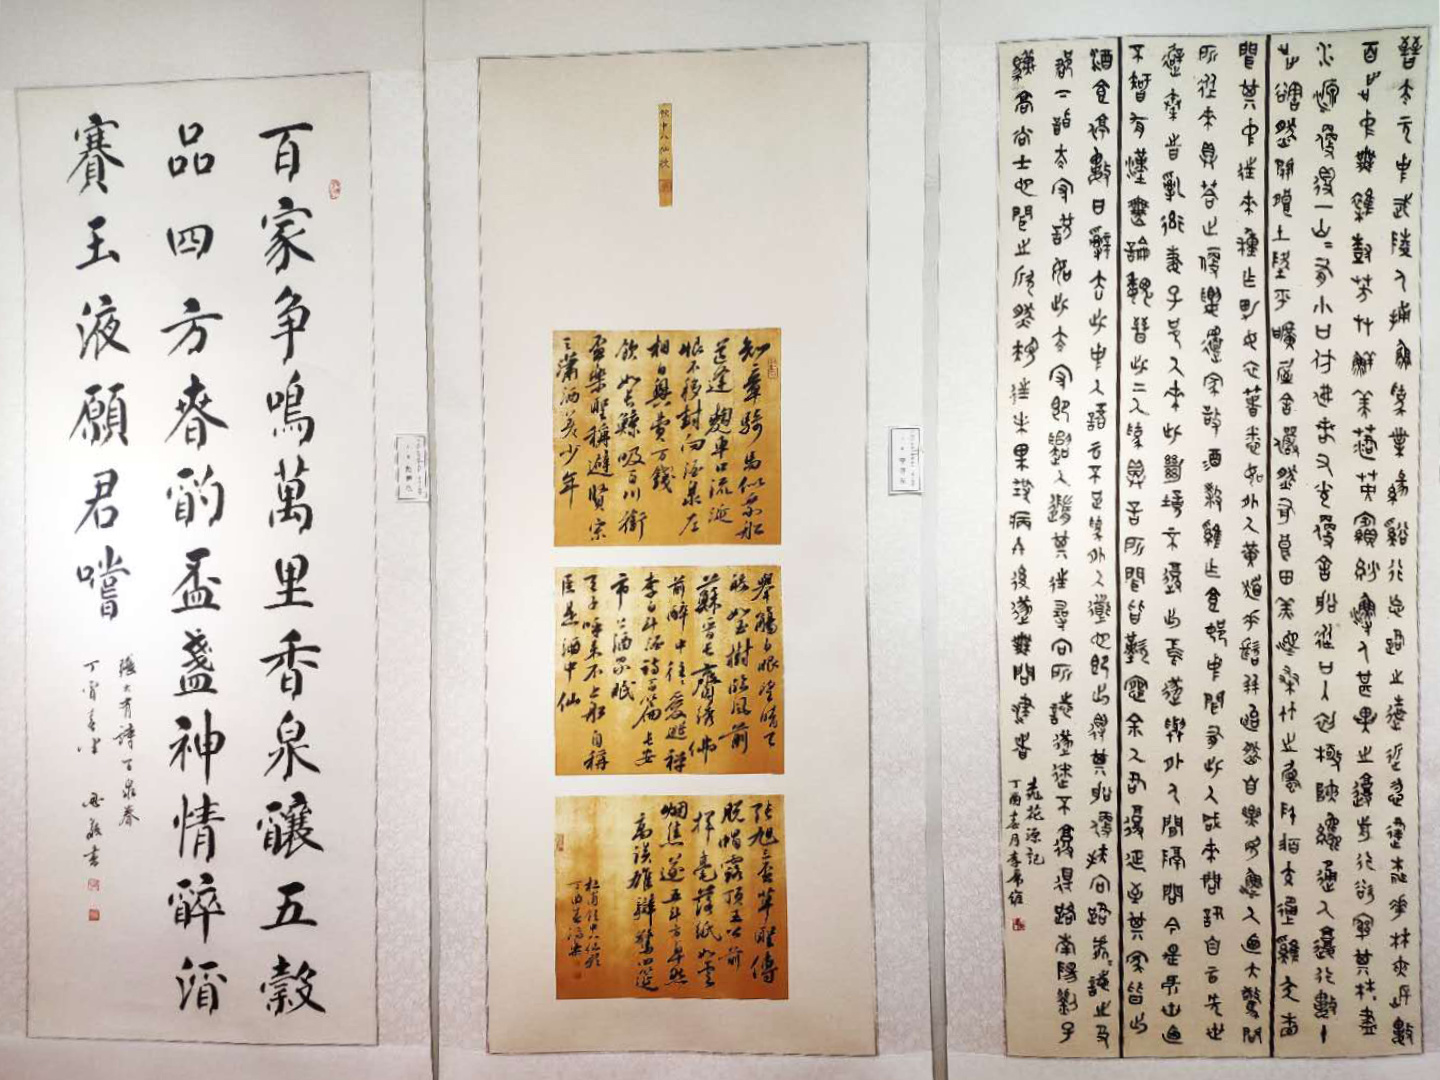 百家争鳴萬里香泉釀五穀
品四方春酌盃盞神情醉酒
賽玉液願君嚐
張大有詩百泉春
丁酉春
飲中八仙歌
知章騎馬似乘船
道逢麴車口流涎
恨不移封向酒泉左
相日興費万錢
飲如長鯨吸百川銜
盃樂聖稱避賢宗
之瀟洒美少年
舉觴白眼望晴天
皎如玉樹臨風前
蘇晋長齋繡佛
前醉中往往愛逃禅
李白斗酒詩百篇長安
市上酒家眠
天子呼来不上船自稱
臣是酒中仙
張旭三盃草聖傳
脱帽露頂王公前
揮毫落紙如雲
烟焦遂五斗方卓然
高談雄辯驚四筵
杜甫飲中八仙歌
丁酉春
晉太元中武陵人捕魚為業緣谿行忘路之遠近忽逢桃花林夾岸數
百步中無雜樹芳草鮮美落英繽紛漁人甚異之復前行欲窮其林林盡
水源便得一山山有小口仿佛若有光便舍船從口入初極狹纔通人復行數十
步豁然開朗土地平曠屋舍儼然有良田美池桑竹之屬阡陌交通雞犬相
聞其中往來種作男女衣著悉如外人黃髮垂髫並怡然自樂見漁人乃大驚問
所從來具答之便要還家設酒殺雞作食村中聞有此人咸來問訊自云先世
避秦時亂率妻子邑人來此絕境不復出焉遂與外人間隔問今是何世乃
不知有漢無論魏晉此人一一為具言所聞皆歎惋餘人各復延至其家皆出
酒食停數日辭去此中人語云不足為外人道也既出得其船便扶向路處處誌之及
郡下詣太守說如此太守即遣人隨其往尋向所誌遂迷不復得路南陽劉子
驥高尚士也聞之欣然規往未果尋病終後遂無問津者
桃花源記
丁酉春月李